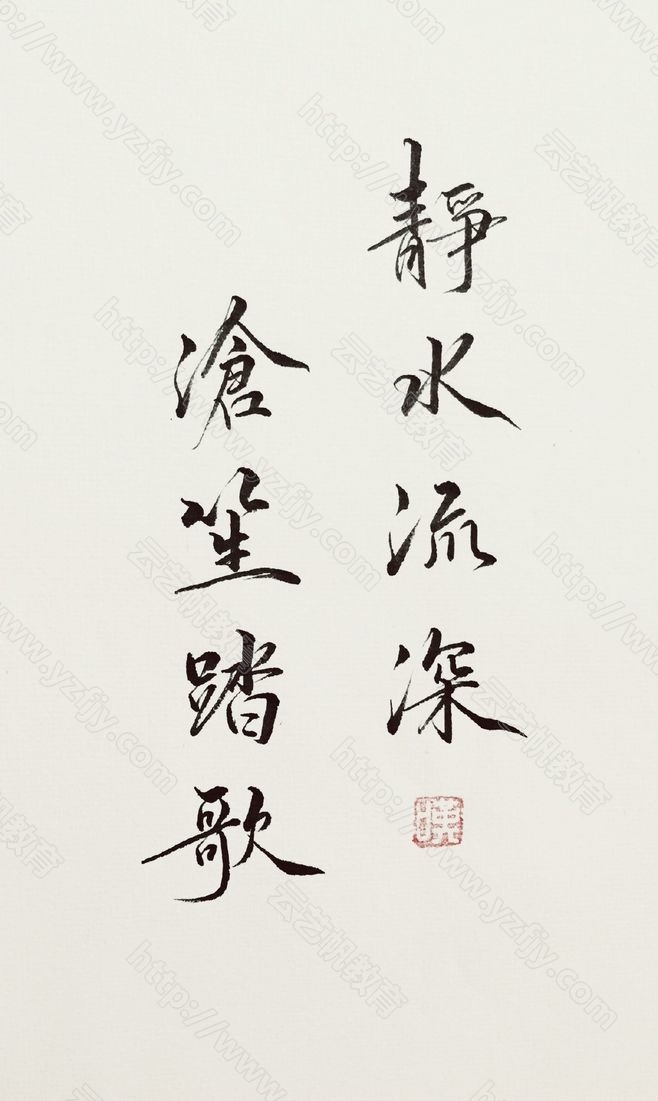 靜水流深
滄笙踏歌
云艺帆教育
http://www.yzfjy.com